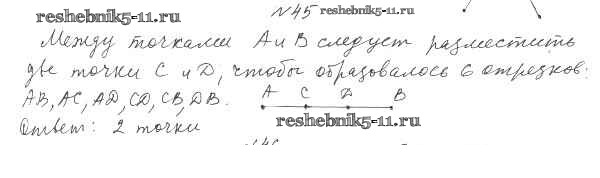 reshebnik5-11.ru
№45 reshebnik5-11.ru
Между точками А и В следует разместить
две точки С и D, чтобы образовалось 6 отрезков:
АВ, АС, АD, CD, CB, DB.
А С D В
Ответ: 2 точки
reshebnik5-11.ru